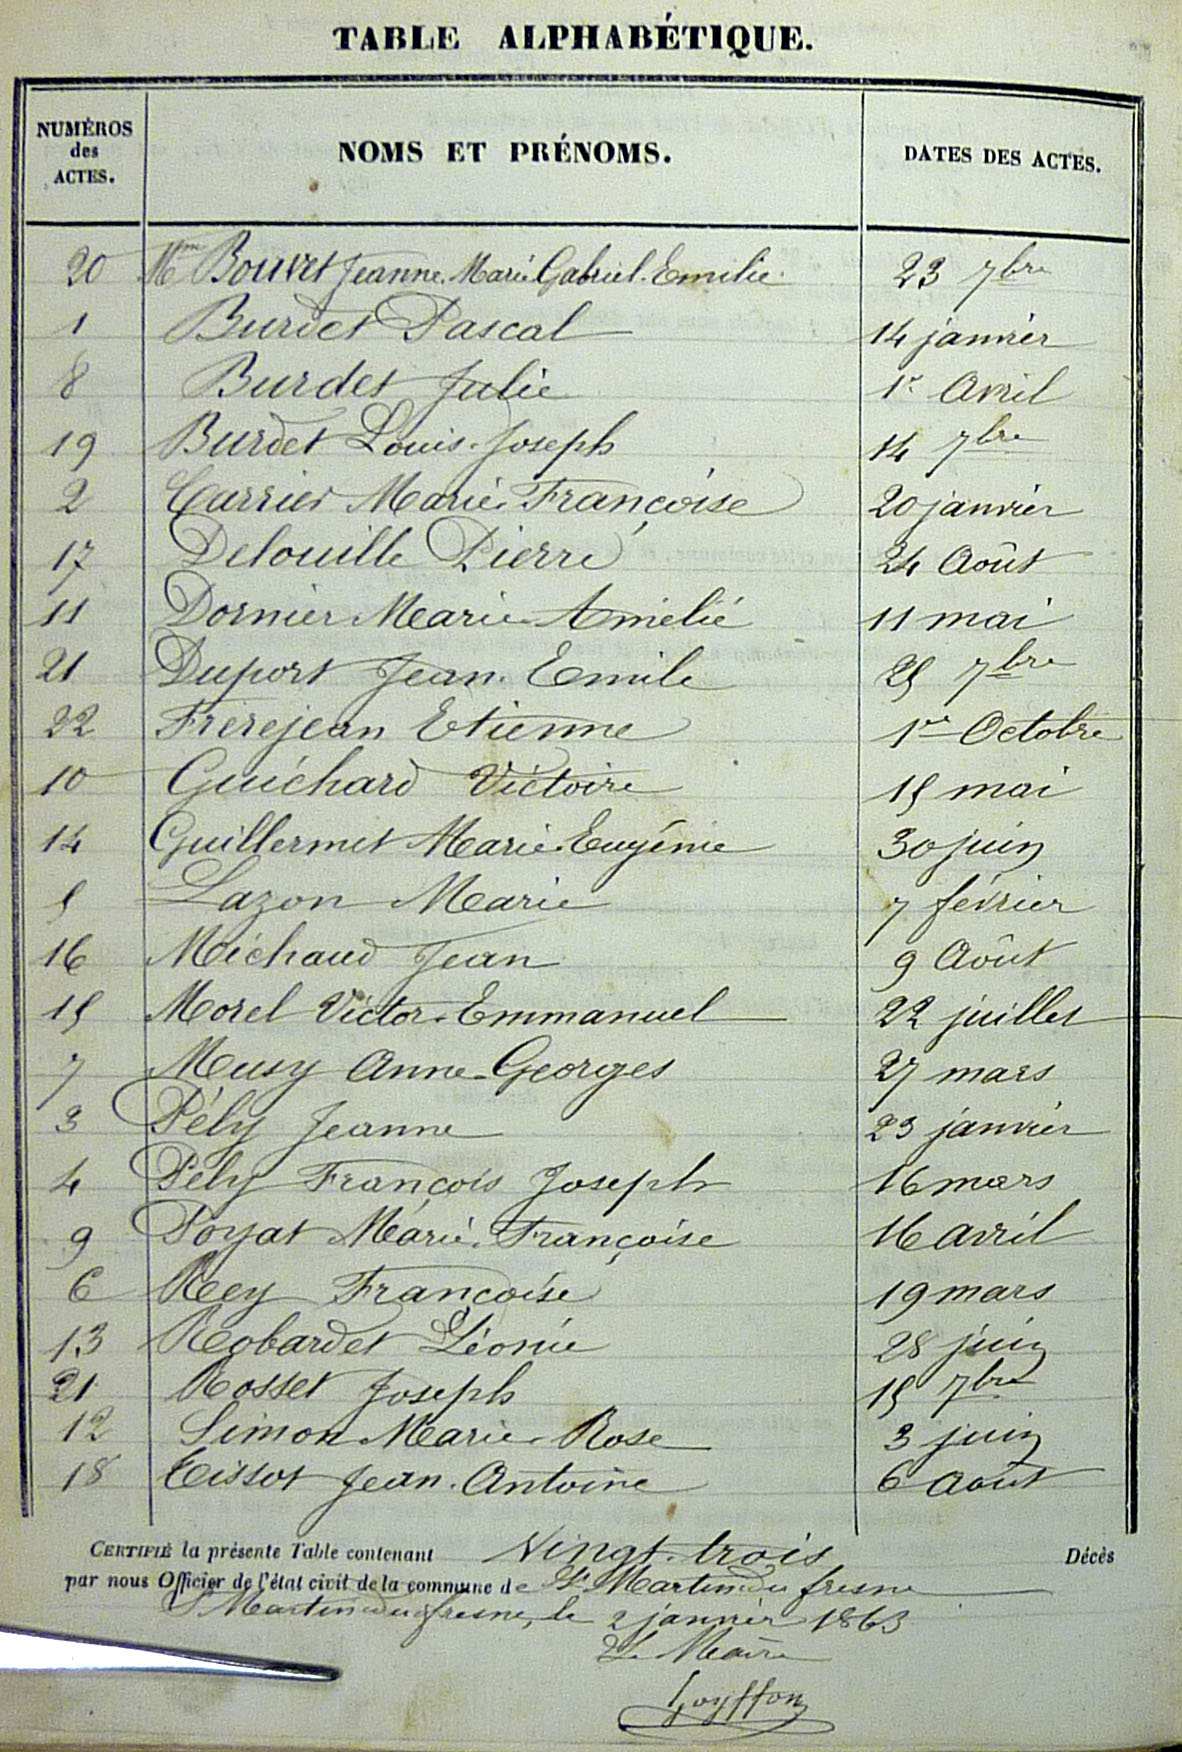 TABLE ALPHABÉTIQUE.
NUMÉROS des ACTES. NOMS ET PRÉNOMS. DATES DES ACTES.
20 Bouvet Jeanne Marie Gabriel Emilie 23 7bre
1 Burdet Pascal 14 janvier
8 Burdet Julie 1r Avril
19 Burdet Louis Joseph 14 7bre
2 Carrier Marie Françoise 20 janvier
17 Delouille Pierre 24 Août
11 Dornier Marie Amélie 11 mai
21 Duport Jean Emile 25 7bre
22 Frerejean Etienne 1re Octobre
10 Guichard Victoire 15 mai
14 Guillermet Marie Eugénie 30 juin
5 Lazon Marie 7 février
16 Michaud Jean 9 Août
15 Morel Victor Emmanuel 22 juillet
7 Musy Anne Georges 27 mars
3 Pély Jeanne 23 janvier
4 Pély François Joseph 16 mars
9 Poyat Marie Françoise 16 avril
6 Rey Françoise 19 mars
13 Robardet Léonie 28 juin
21 Rosset Joseph 15 7bre
12 Simon Marie Rose 3 juin
18 Tissot Jean Antoine 6 Août
CERTIFIÉ la présente Table contenant Vingt-trois Décès
par nous Officier de l'état civil de la commune de St Martin du fresne
St Martin du fresne, le 2 janvier 1863
Le Maire
Goyffon